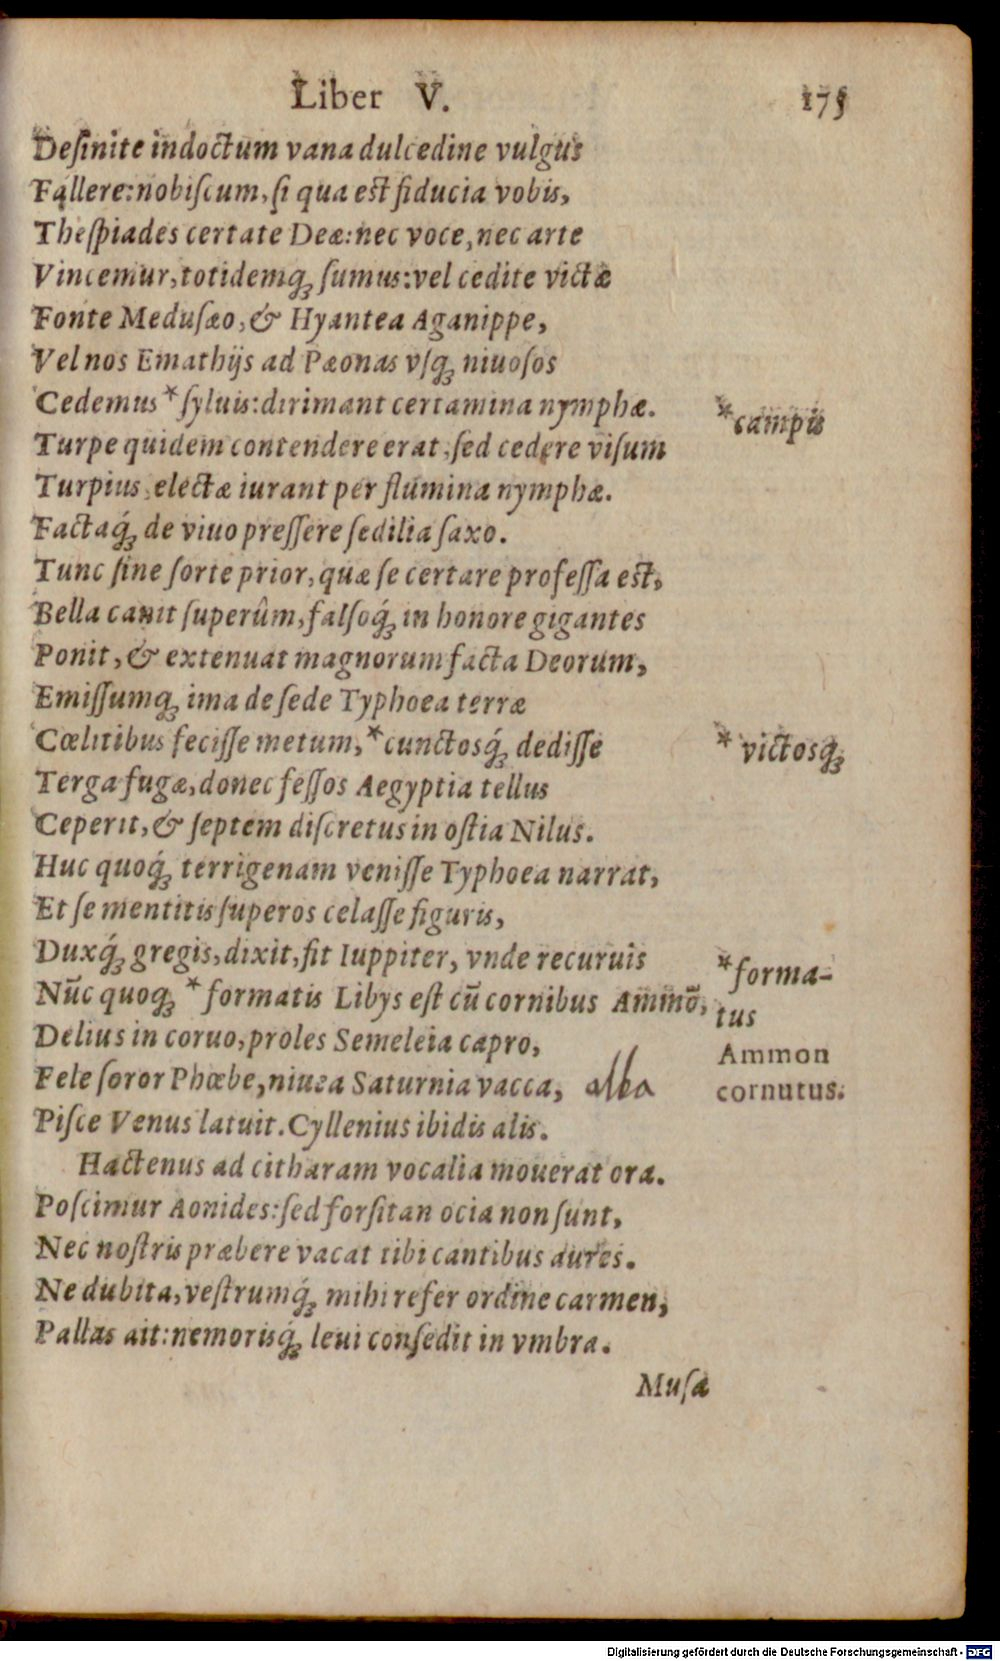 Liber V. 175
Deſinite indoctum vana dulcedine vulgus
Fallere: nobiſcum, ſi qua est fiducia vobis,
Theſpiades certate Deæ: nec voce, nec arte
Vincemur, totidemq́; ſumus: vel cedite victæ
Fonte Meduſæo, & Hyantea Aganippe,
Vel nos Emathijs ad Pæonas vſq; niuoſos
Cedemus *ſyluis: dirimant certamina nymphæ.
*campis
Turpe quidem contendere erat, ſed cedere viſum
Turpius, electæ iurant per flumina nymphæ.
Factaq́; de viuo preſſere ſedilia ſaxo.
Tunc ſine ſorte prior, quæ ſe certare profeſſa est,
Bella canit ſuperûm, falſoq́; in honore gigantes
Ponit, & extenuat magnorum facta Deorum,
Emiſſumq; ima de ſede Typhoea terræ
Cœlitibus feciſſe metum, *cunctosq́; dediſſe
*victosq;
Terga fugæ, donec feſſos Aegyptia tellus
Ceperit, & ſeptem diſcretus in oſtia Nilus.
Huc quoq́; terrigenam veniſſe Typhoea narrat,
Et ſe mentitis ſuperos celaſſe figuris,
Duxq́; gregis, dixit, fit Iuppiter, vnde recuruis
*forma-
Nūc quoq; *formatis Libys eſt cū cornibus Ammō,
tus
Delius in coruo, proles Semeleia capro,
Ammon
Fele ſoror Phœbe, niuea Saturnia vacca, alba
cornutus.
Piſce Venus latuit. Cyllenius ibidis alis.
Hactenus ad citharam vocalia mouerat ora.
Poſcimur Aonides: ſed forſitan ocia non ſunt,
Nec noſtris præbere vacat tibi cantibus aures.
Ne dubita, veſtrumq́; mihi refer ordine carmen,
Pallas ait: nemorisq́; leui conſedit in vmbra.
Muſa
Digitalisierung gefördert durch die Deutsche Forschungsgemeinschaft - DFG